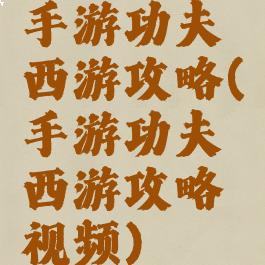 手游功夫
西游攻略(
手游功夫
西游攻略
视频)